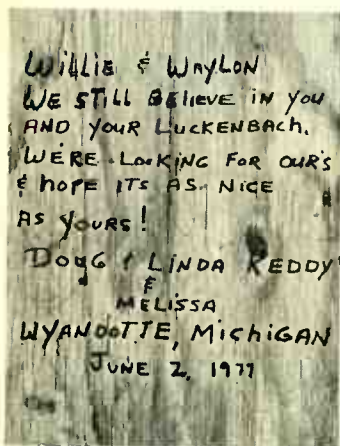 WILLIE & WAYLON
WE STILL BELIEVE IN YOU
AND YOUR LUCKENBACH.
WE'RE LOOKING FOR OUR'S
& HOPE ITS AS NICE
AS YOURS!
DOUG & LINDA REDDY
&
MELISSA
WYANDOTTE, MICHIGAN
JUNE 2, 1977